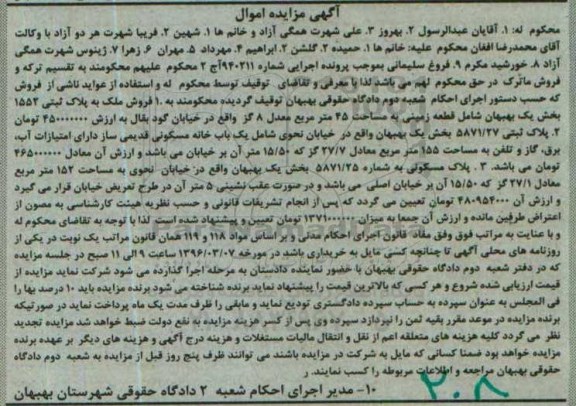 آگهی مزایده اموال
محکوم له: ۱. آقایان عبدالرسول ۲. بهروز ۳. علی شهرت همگی آزاد و خانم ها ۱. شهین ۲. فریبا شهرت هر دو آزاد با وکالت
آقای محمدرضا افغان محکوم علیه: خانم ها ۱. حمیده ۲. گلشن ۲. ابراهیم ۴. مهرداد ۵. مهران ۶. زهرا ۷. ژینوس شهرت همگی
آزاد ۸. خورشید مکرم ۹. فروغ سلیمانی بموجب پرونده اجرایی شماره ۹۴۰۲۱۱آج ۲ محکوم علیهم محکومند به تقسیم ترکه و
فروش ماترک در حق محکوم لهم می باشد لذا با معرفی و تقاضای توقیف توسط محکوم له و استفاده از عواید ناشی از فروش
که حسب دستور اجرای احکام شعبه دوم دادگاه حقوقی بهبهان توقیف گردیده محکومند به ۱. فروش ملک به پلاک ثبتی ۱۵۵۲
بخش یک بهبهان شامل قطعه زمینی به مساحت ۴۵ متر مربع معدل ۸ گز واقع در خیابان گود بقال به ارزش ۴۵۰۰۰۰۰۰ تومان
۲. پلاک ثبتی ۵۸۷۱/۲۷ بخش یک بهبهان واقع در خیابان نحوی شامل یک باب خانه مسکونی قدیمی ساز دارای امتیازات آب،
برق، گاز و تلفن به مساحت ۱۵۵ متر مربع معادل ۲۷/۷ گز که ۱۵/۵۰ متر آن بر خیابان می باشد و ارزش آن معادل ۴۶۵۰۰۰۰۰۰
تومان می باشد. ۳. پلاک مسکونی به شماره ۵۸۷۱/۲۵ بخش یک بهبهان واقع در خیابان نحوی به مساحت ۱۵۲ متر مربع
معادل ۲۷/۱ گز که ۱۵/۵۰ آن بر خیابان اصلی می باشد و در صورت عقب نشینی ۵ متر آن در طرح تعریض خیابان قرار می گیرد
و ارزش آن ۴۸۰۹۵۴۰۰۰ تومان تعیین می گردد که پس از انجام تشریفات قانونی و حسب نظریه هیئت کارشناسی به مصون از
اعتراض طرفین مانده و ارزش آن جمعا به میزان تومان تعیین و پیشنهاد شده است. لذا با توجه به تقاضای محکوم له
و با عنایت به مراتب فوق وفق مفاد قانون اجرای احکام مدنی و بر اساس مواد ۱۱۸ و ۱۱۹ همان قانون مراتب یک نوبت در یکی از
روزنامه های محلی آگهی تا چنانچه کسی مایل به خریداری باشد در مورخه ۱۳۹۶/۰۳/۰۷ ساعت ۹ الی ۱۱ صبح در جلسه مزایده
که در دفتر شعبه دوم دادگاه حقوقی بهبهان با حضور نماینده دادستان به مرحله اجرا گذارده می شود شرکت نماید مزایده از
قیمت ارزیابی شده شروع و هر کسی که بالاترین قیمت را پیشنهاد نماید برنده شناخته می شود برنده مزایده باید ۱۰ درصد بها را
فی المجلس به عنوان سپرده به حساب سپرده دادگستری تودیع نماید و مابقی را ظرف مدت یک ماه پرداخت نماید در صورتیکه
برنده مزایده در موعد مقرر بقیه ثمن را نپردازد سپرده وی پس از کسر هزینه مزایده به نفع دولت ضبط خواهد شد مزایده تجدید
نظر می گردد کلیه هزینه های متعلقه اعم از نقل و انتقال مالیات مستغلات و هزینه درج آگهی و هزینه های دیگر بر عهده برنده
مزایده خواهد بود ضمنا کسانی که مایل به شرکت در مزایده باشند می توانند ظرف پنج روز قبل از مزایده به شعبه دوم دادگاه
حقوقی بهبهان مراجعه و اطلاعات مربوطه را کسب نمایند. ر
۱۰- مدیر اجرای احکام شعبه ۲ دادگاه حقوقی شهرستان بهبهان
۲۰۸